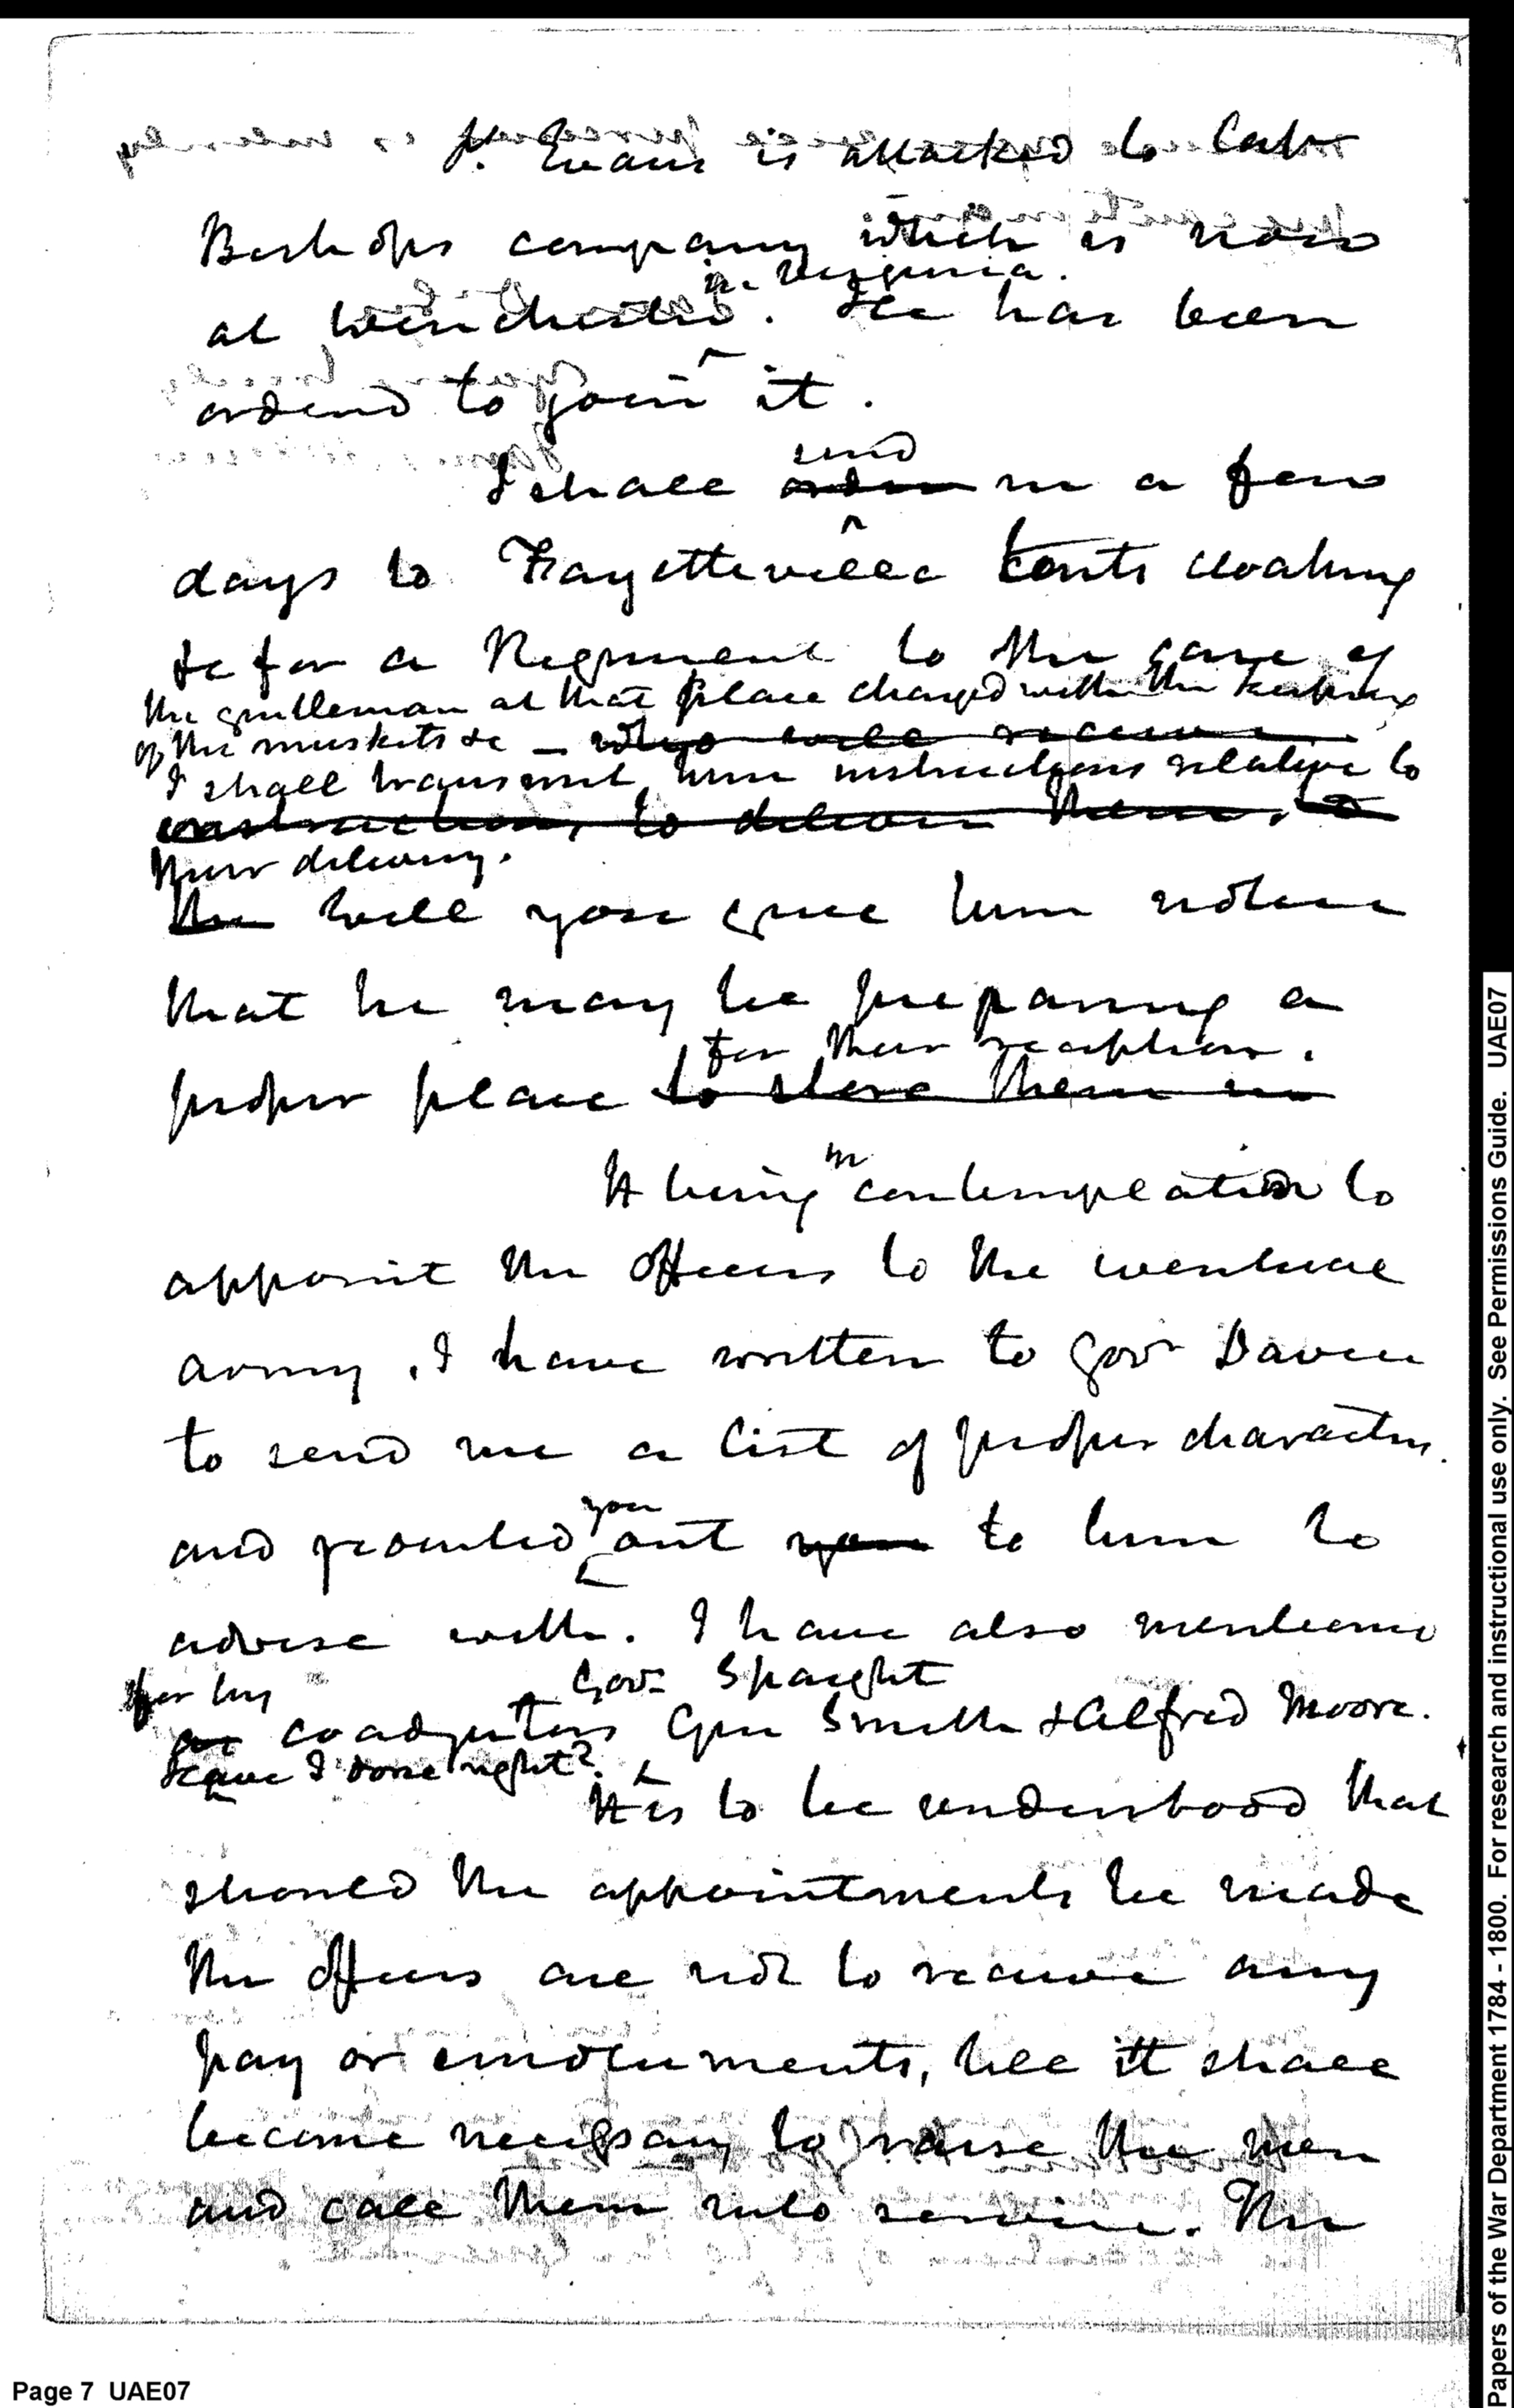 Jr. Evans is attached to Capt
Bishops company which is now
in Virginia.
at Winchester. He has been
ordered to join it.
send
I shall order in a few
days to Fayetteville tents cloathing
&c for a Regiment to the care of
the gentleman at that place charged with the keeping
of the muskets &c — who will receive
I shall transmit him instructions relative to
instructions, to deliver them, to
their delivery.
the will you give him notice
that he may be preparing a
for their reception.
proper place to store them in
in
It being contemplation to
appoint the officers to the eventual
army, I have written to Govr Davie
to send me a list of proper characters.
you
and pointed out you to him to
advise with. I have also mentioned
for his Govr Spaight
as coadjutors Gen Smith & Alfred Moore.
Have I done right?
It is to be understood that
should the appointments be made
the officers are not to receive any
pay or emoluments, till it shall
become necessary to raise the men
and call them into service. The
Page 7 UAE07
Papers of the War Department 1784 - 1800. For research and instructional use only. See Permissions Guide. UAE07